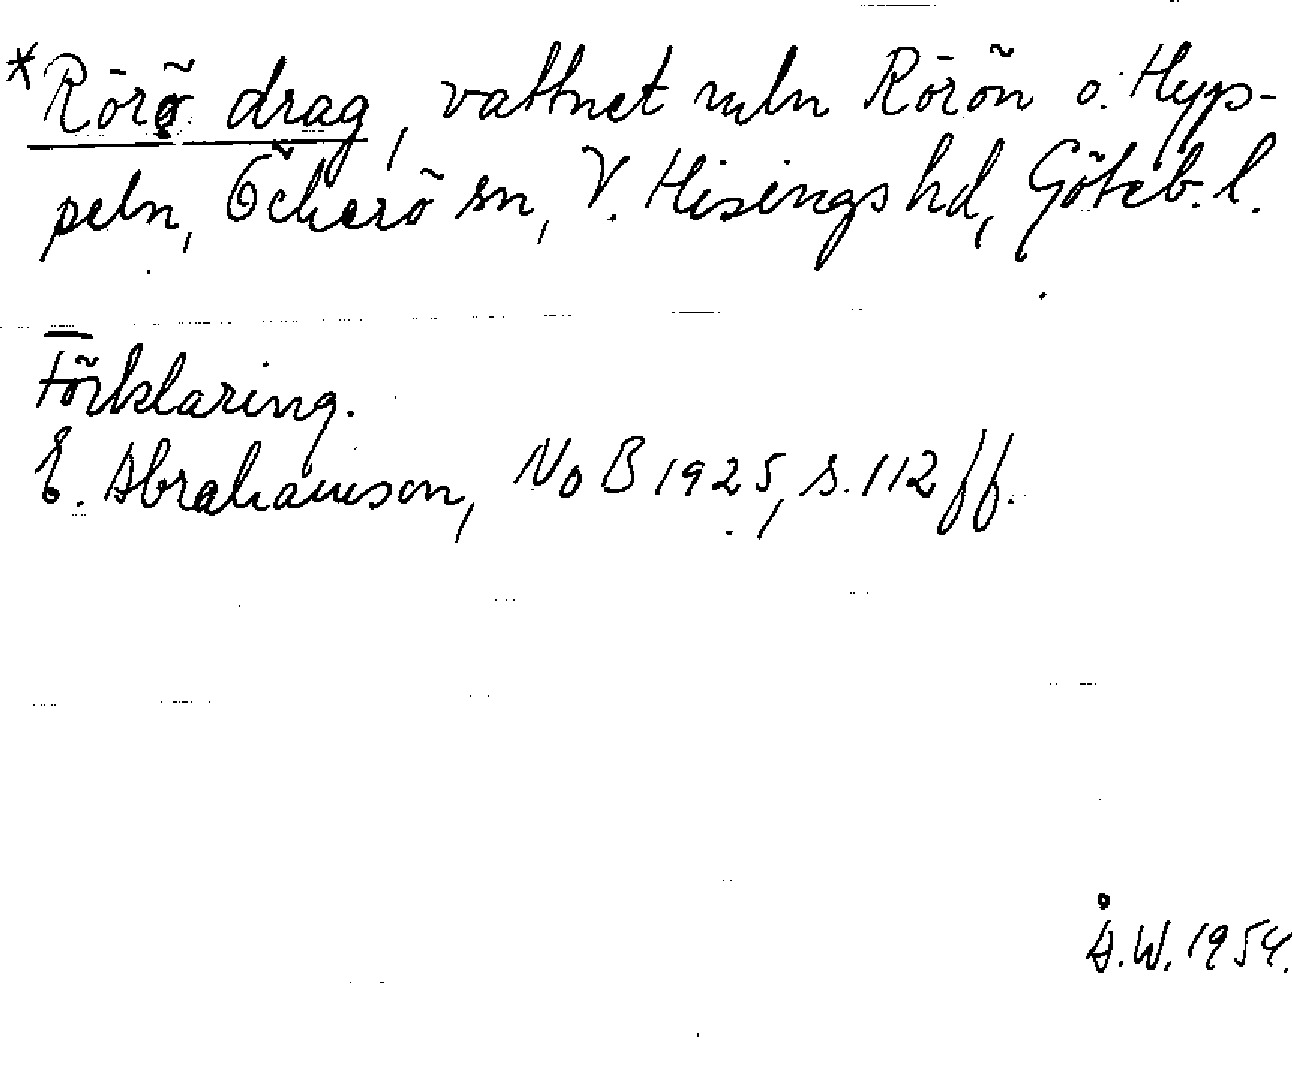 *Rörö drag, vattnet mln Rörön o. Hyp-
peln, Öckerö sn, V. Hisings hd, Göteb. l.
Förklaring.
E. Abrahamson, NoB 1925, s. 112 ff.
Å.W. 1954.